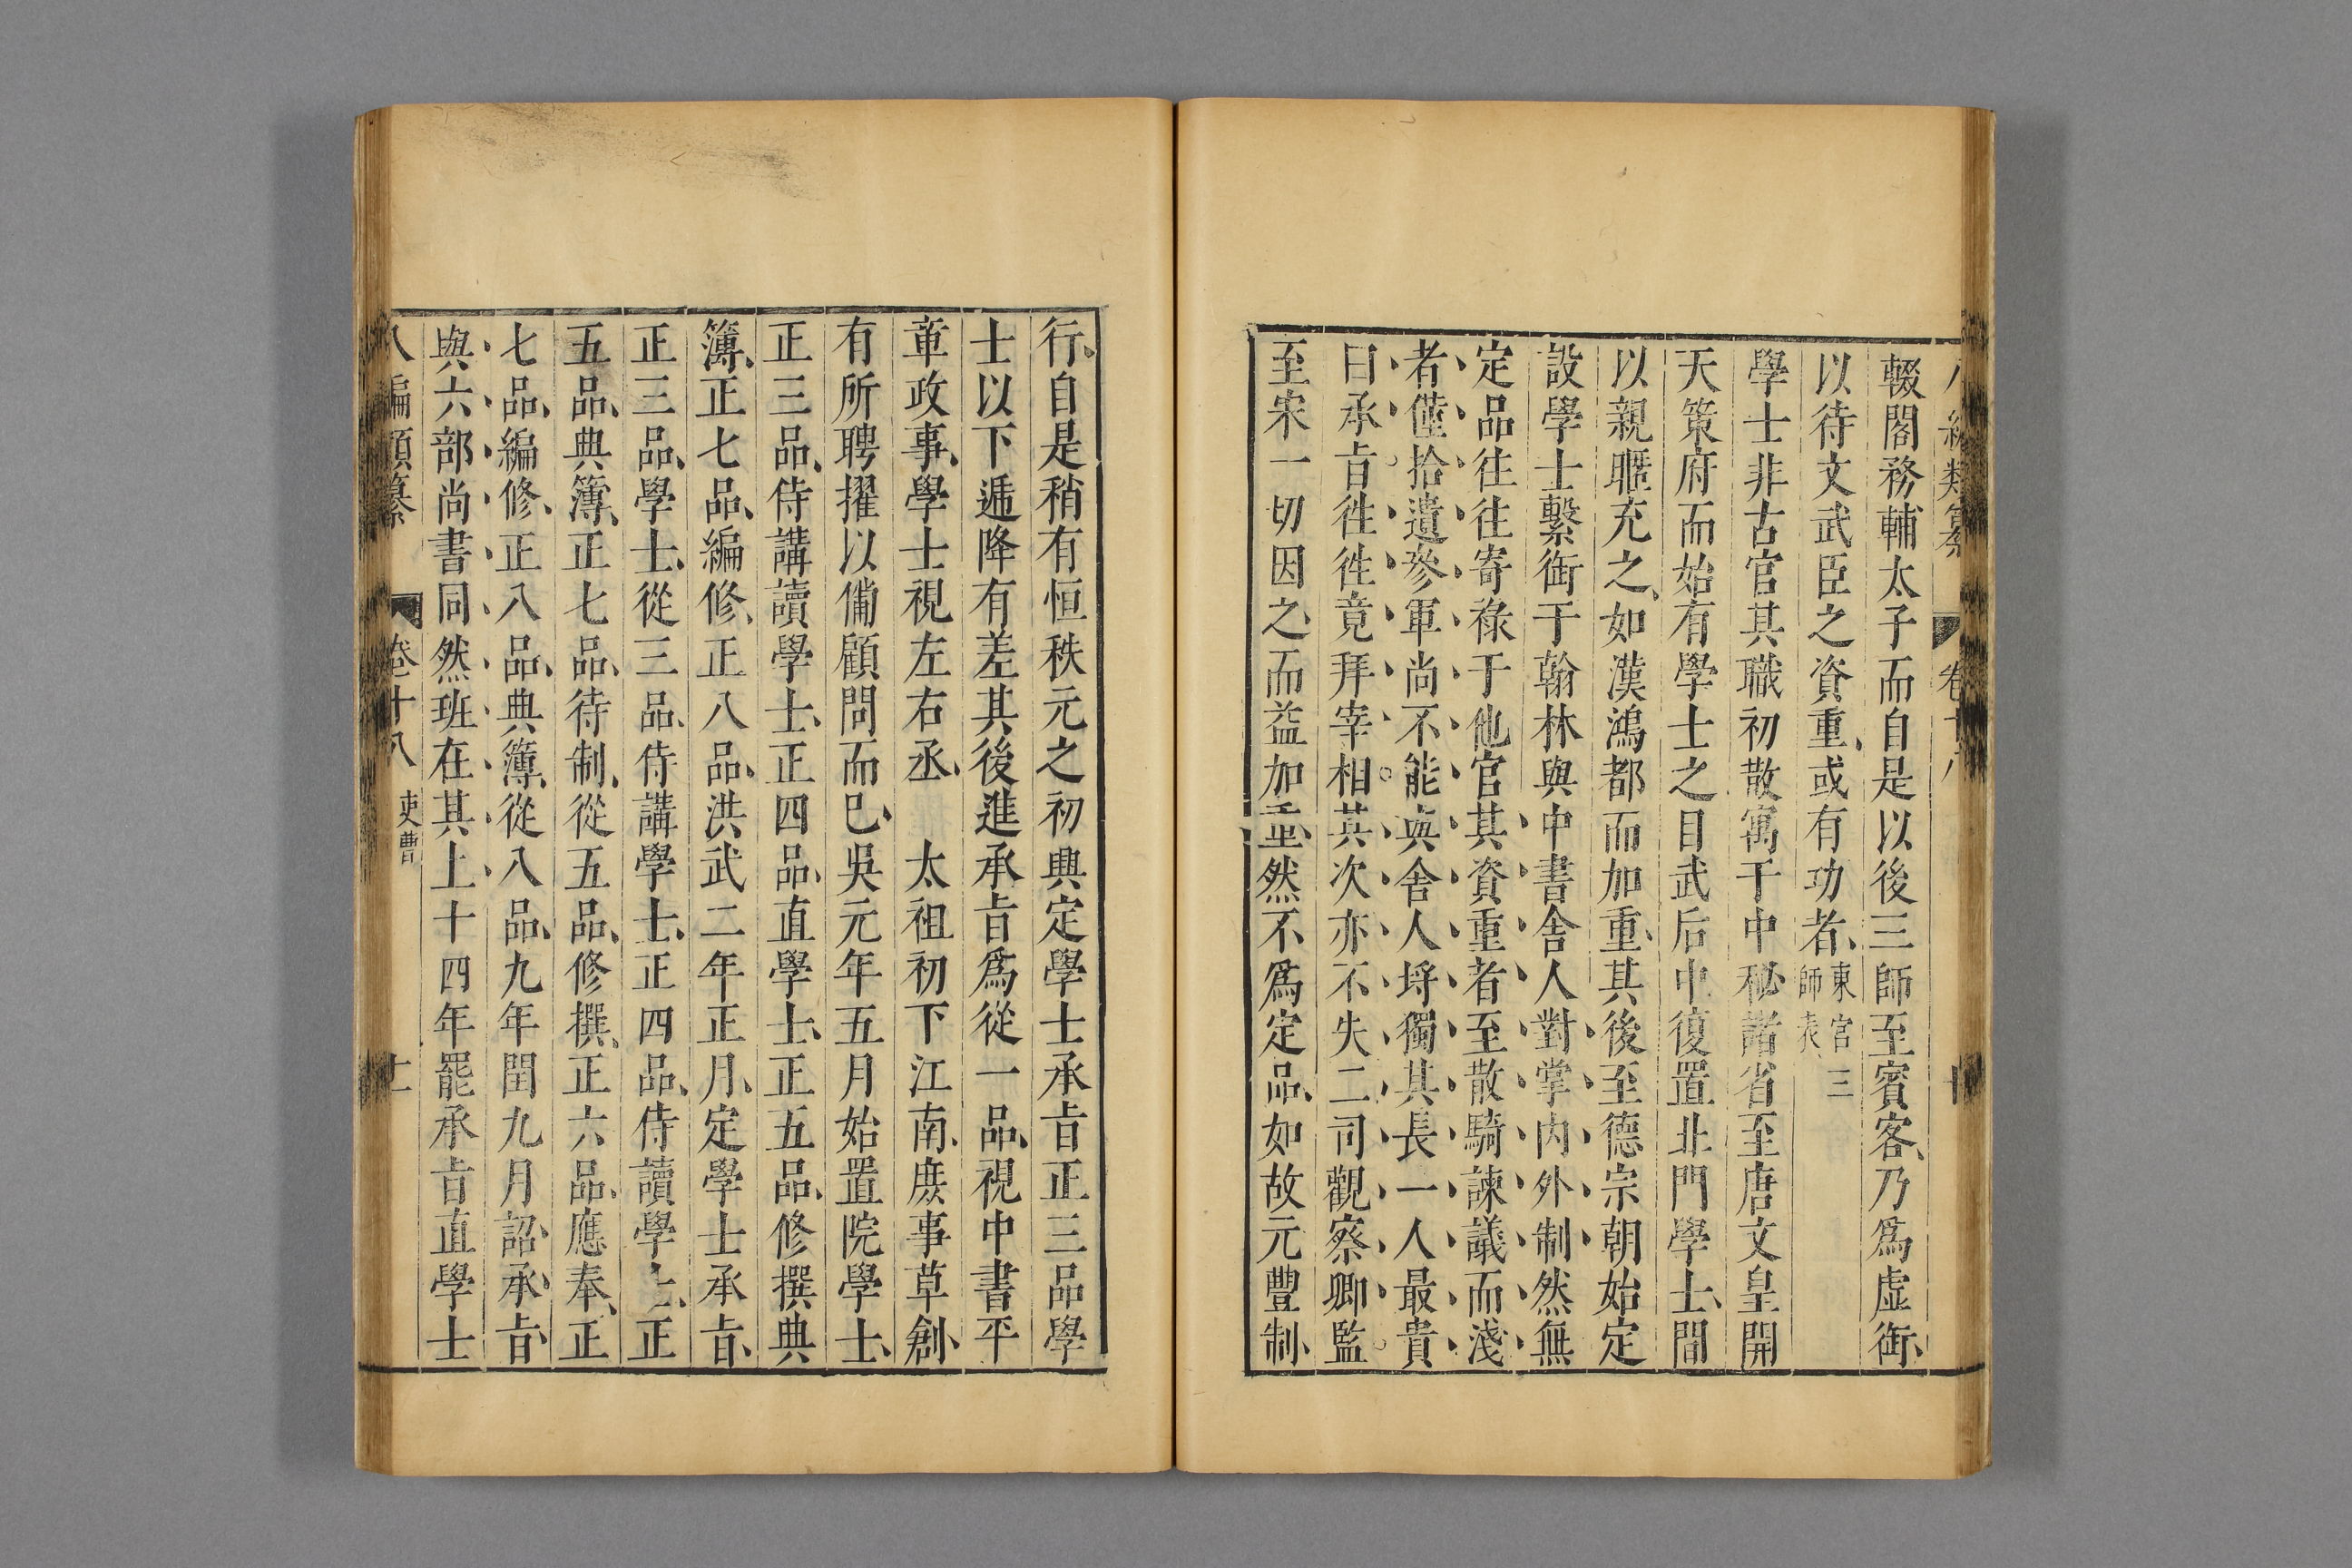 八編類纂 卷十八 十
輟閣務輔太子而自是以後三師至賓客乃爲虛銜
以待文武臣之資重或有功者東宮三師表
學士非古官其職初散寓于中秘諸省至唐文皇開
天策府而始有學士之目武后中復置北門學士間
以親暱充之如漢鴻都而加重其後至德宗朝始定
設學士繫銜于翰林與中書舍人對掌内外制然無
定品往往寄祿于他官其資重者至散騎諫議而淺
者僅拾遺參軍尚不能與舍人埒獨其長一人最貴
曰承旨徃徃竟拜宰相其次亦不失二司觀察卿監
至宋一切因之而益加重然不爲定品如故元豐制
行自是稍有恒秩元之初興定學士承旨正三品學
士以下遞降有差其後進承旨爲從一品視中書平
章政事學士視左右丞 太祖初下江南庻事草創
有所聘擢以備顧問而已吳元年五月始置院學士
正三品侍講讀學士正四品直學士正五品修撰典
簿正七品編修正八品洪武二年正月定學士承旨
正三品學士從三品侍講學士正四品侍讀學士正
五品典簿正七品待制從五品修撰正六品應奉正
七品編修正八品典簿從八品九年閏九月詔承旨
與六部尚書同然班在其上十四年罷承旨直學士
八編類纂 卷十八 吏曹 十一